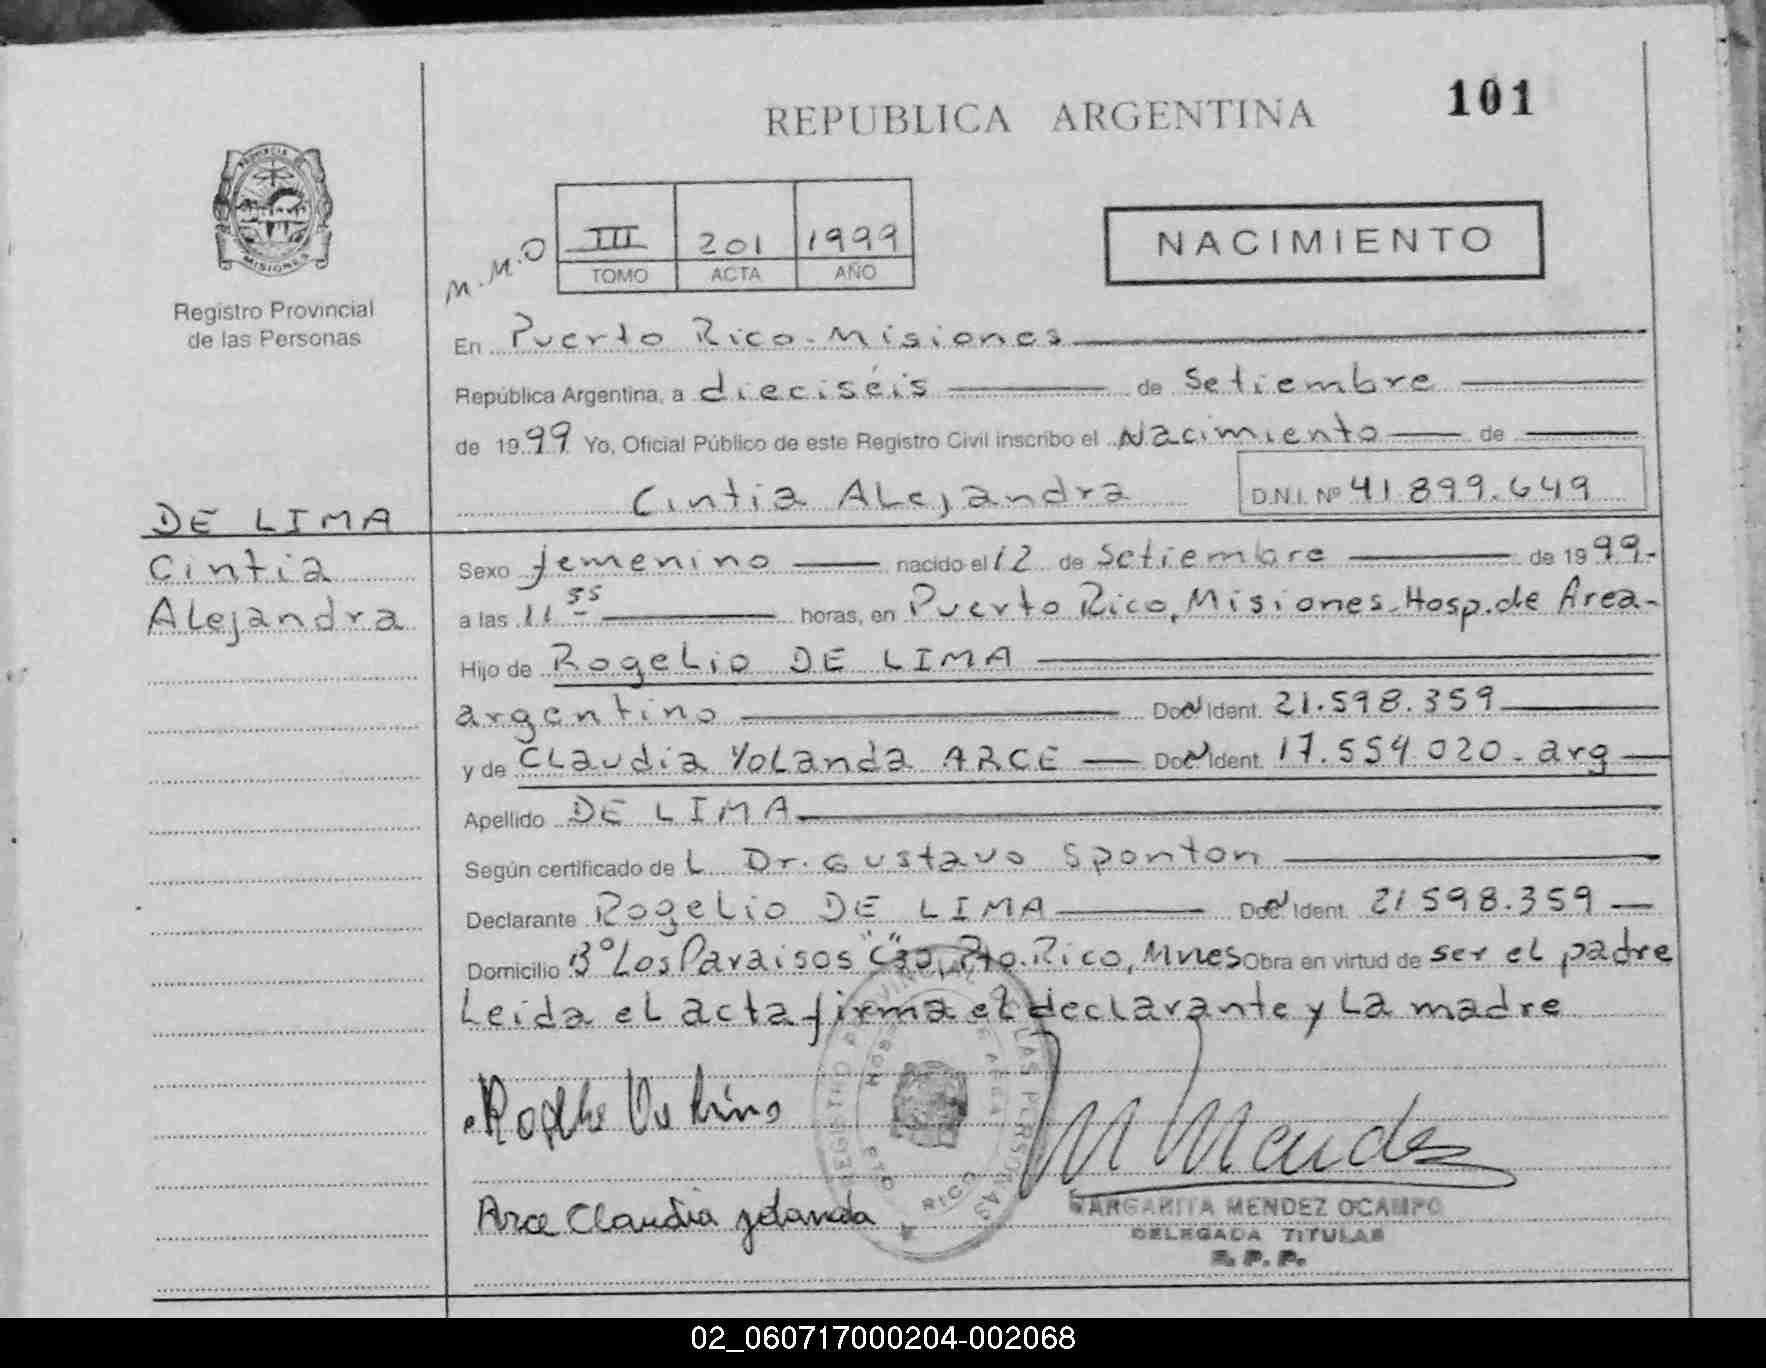 REPUBLICA ARGENTINA
101
PROVINCIA DE
MISIONES
Registro Provincial
de las Personas
M.M.O
III 201 1999
TOMO ACTA AÑO
NACIMIENTO
En Puerto Rico - Misiones
República Argentina, a dieciséis de Setiembre
de 1999 Yo, Oficial Público de este Registro Civil inscribo el Nacimiento de
Cintia Alejandra D.N.I. Nº 41.899.649
DE LIMA
Cintia
Alejandra
Sexo femenino nacido el 12 de Setiembre de 1999.-
a las 11 55 horas, en Puerto Rico, Misiones-Hosp. de Area-
Hijo de Rogelio DE LIMA
argentino Doc Ident. 21.598.359
y de Claudia Yolanda ARCE Doc Ident. 17.554.020 - arg
Apellido DE LIMA
Según certificado de L Dr. Gustavo Sponton
Declarante Rogelio DE LIMA Doc Ident. 21598.359
Domicilio Bº Los Paraisos "C" Pto. Rico, Mnes Obra en virtud de ser el padre
Leida el acta firma el declarante y la madre
REGISTRO PROVINCIAL DE LAS PERSONAS
PTO RICO
M Mendez
Arce Claudia yolanda
MARGARITA MENDEZ OCAMPO
DELEGADA TITULAR
R. P. P.
02_060717000204-002068